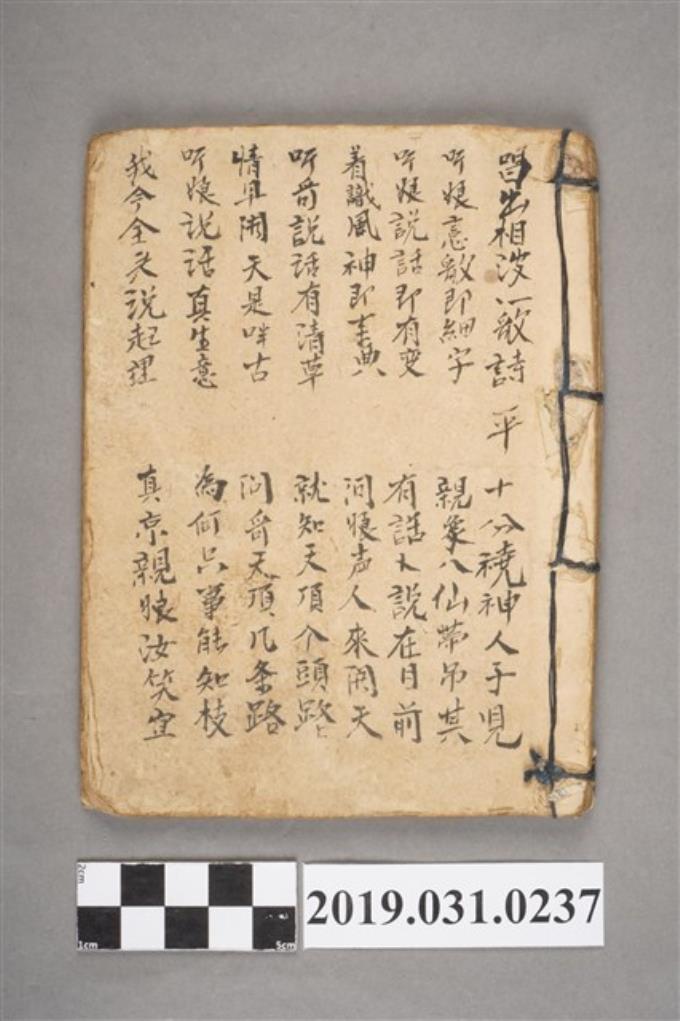 唱出相浡八歌詩 平 十分穒神人子児
听娘意歌即細字 親象八仙帶吊其
听娘說話即有变 有話大說在目前
着識風神即峯典 问娘声人來開天
听哥說話有清草 就知天頂个頭路
情早開天是咩古 问哥天頂几条路
听娘說話真生意 為何只事能知枝
我今全头說起理 真京親娘汝笑宜
2cm
1cm
5cm
2019.031.0237